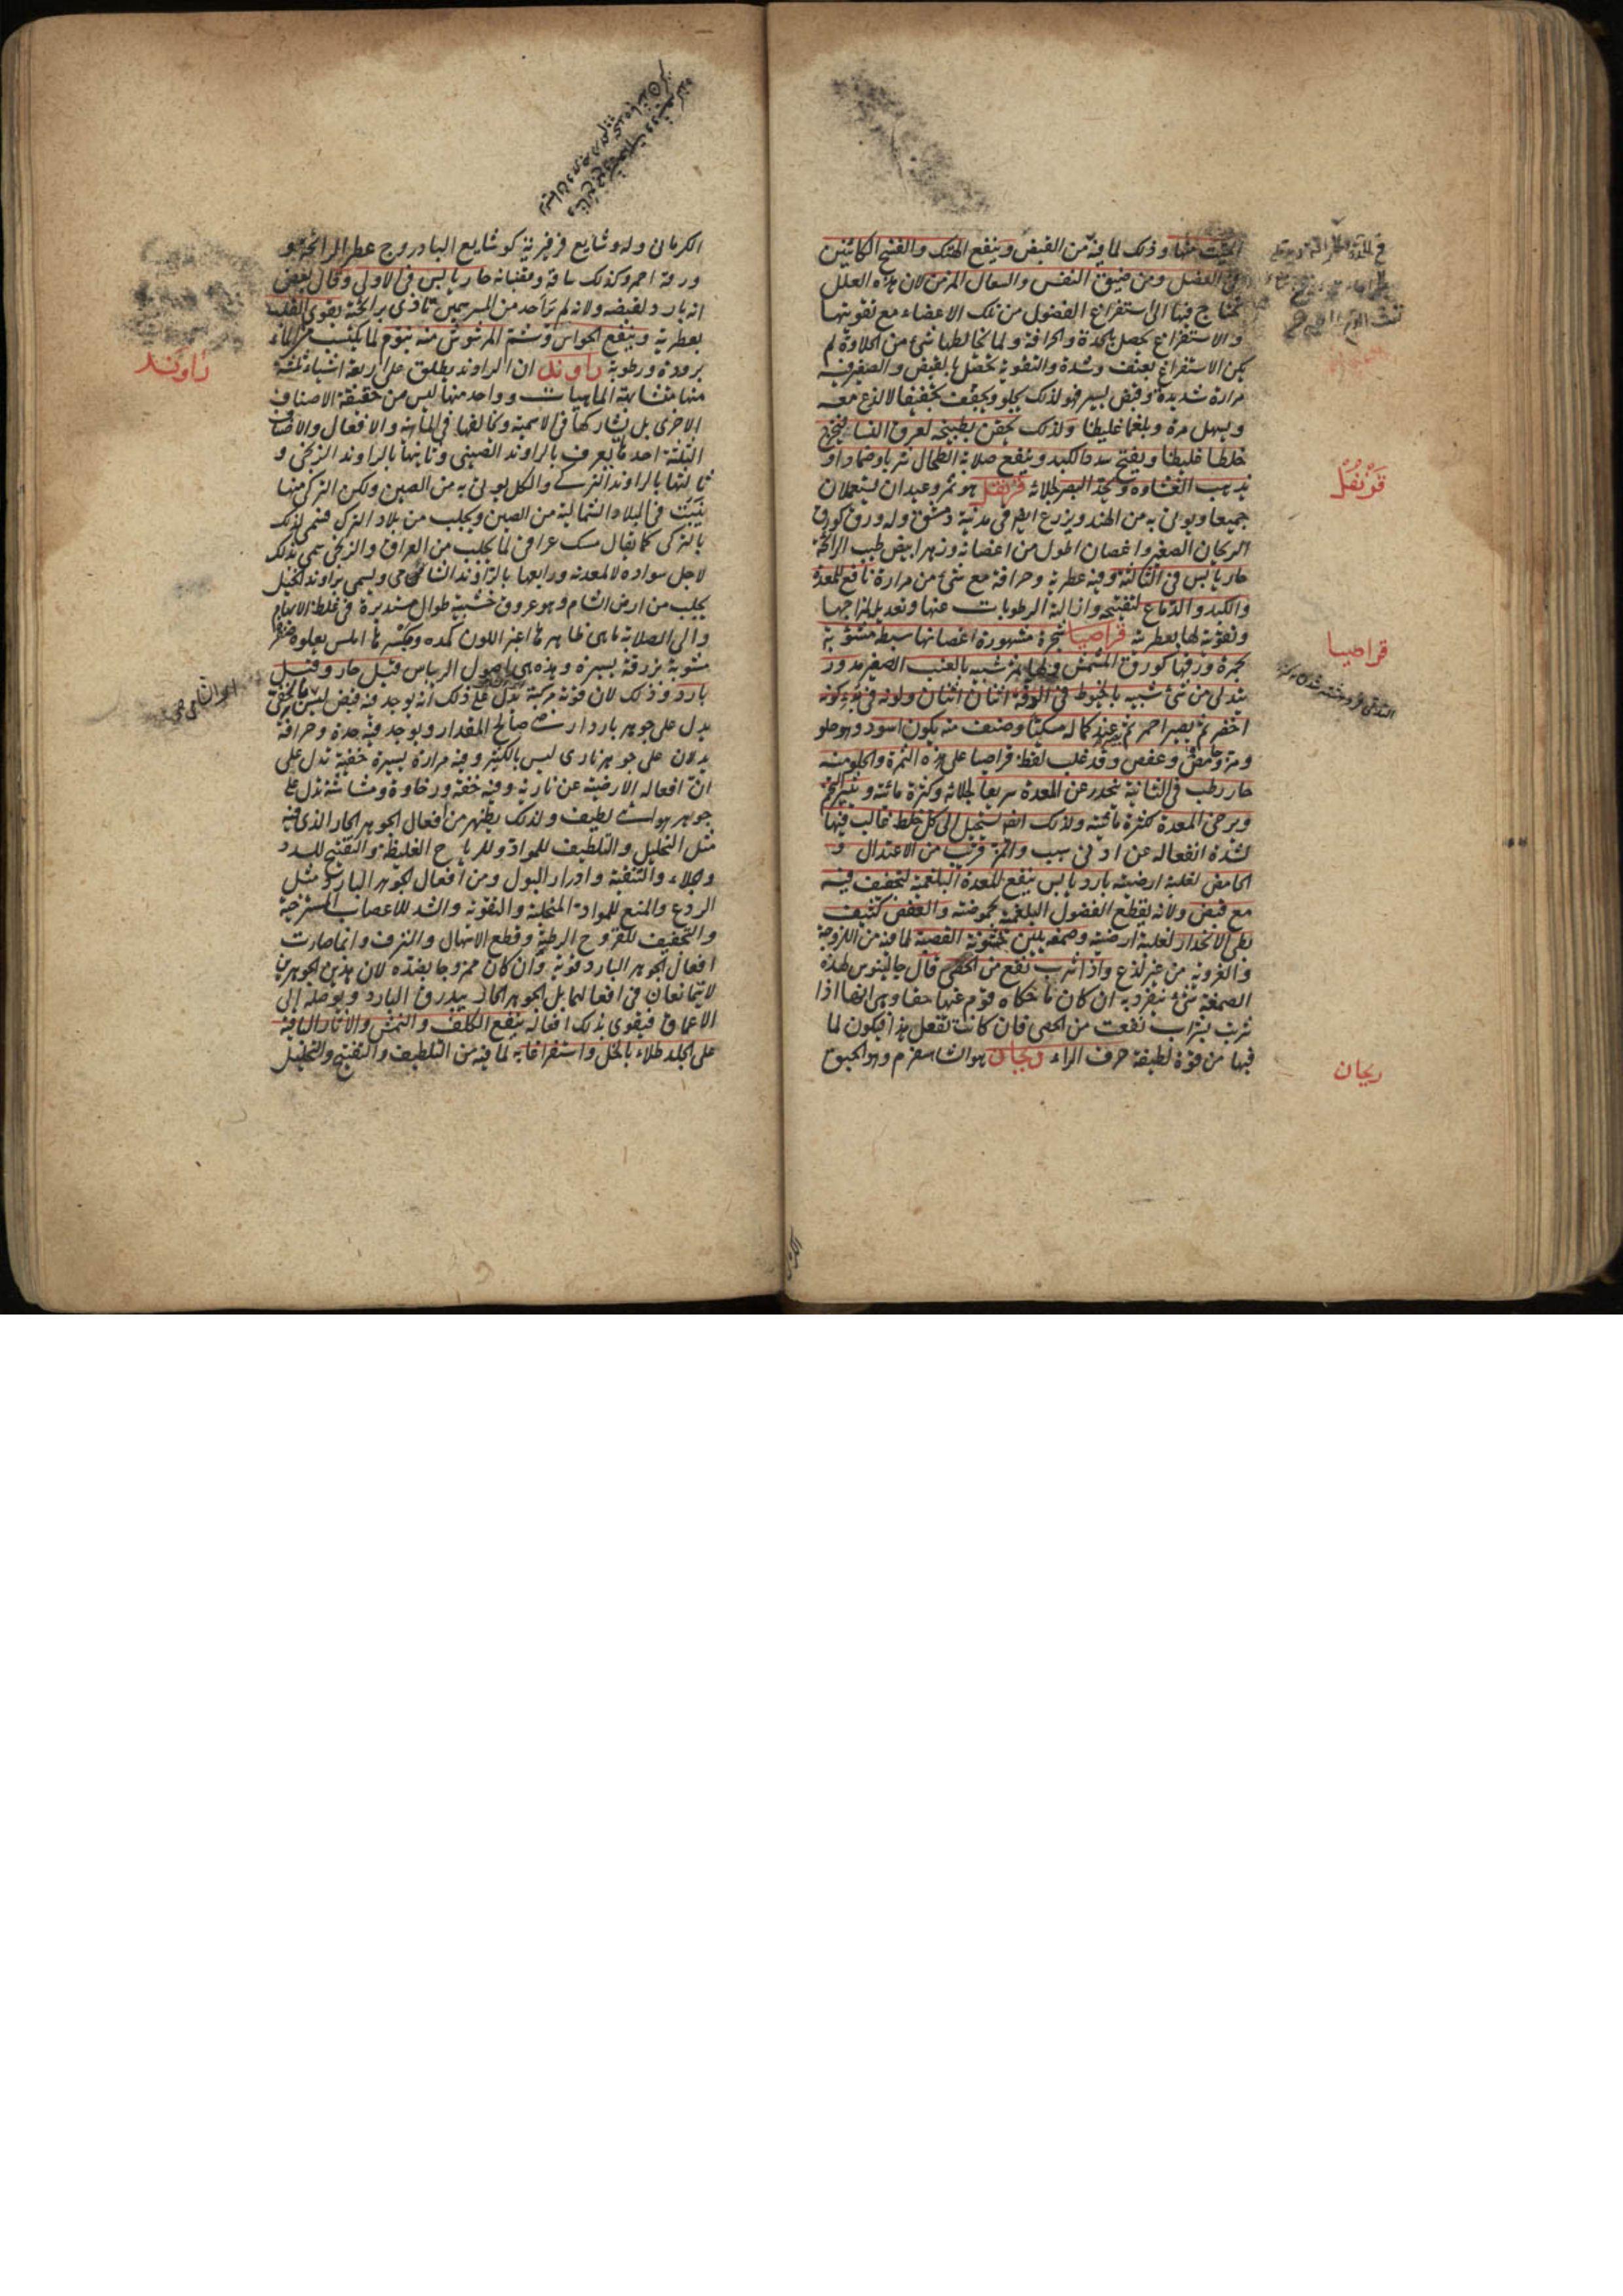 وذلك لما فيه من القبض وينفع الهتك والفسخ الكائنين
فى العضل ومن ضيق النفس والسعال المزمن لان هذه العلل
تحتاج فيها الى استفراغ الفضول من تلك الاعضاء مع تقويتها
والاستفراغ يحصل بالحدة والحرافة ولما يخالطها شئ من الحلاوة لم
يكن الاستفراغ بعنف وشدة والتقوية تحصل بالقبض والصغير فيه
مرارة شديدة وقبض يسير فهو لذلك يجلو ويجفف تجفيفا لا لذع معه
ويسهل مرة وبلغما غليظا ولذلك يحقن بطبيخه لعرق النسا فيخرج
خلطا غليظا ويفتح سدد الكبد وينفع صلابة الطحال شربا وضمادا و
يذهب الغشاوة ويحد البصر لجلائه قرنفل هو ثمر وعيدان يستعملان
جميعا ويؤتى به من الهند ويزرع ايضا فى مدينة دمشق وله ورق كورق
الريحان الصغير واغصان اطول من اغصانه وزهر ابيض طيب الرائحة
حار يابس فى الثالثة وفيه عطرية وحرافة مع شئ من مرارة نافع للمعدة
والكبد والدماغ لتفتيحه وازالة الرطوبات عنها وتعديل مزاجها
وتقويته لها بعطريته قراصيا شجرة مشهورة اغصانها سبطة مشوبة
بحمرة وورقها كورق المشمش ولها ثمر شبيه بالعنب الصغير مدور
يتدلى من شئ شبيه بالخيوط فى الورقة اثنان اثنان ولونه فى بدء كونه
اخضر ثم يصير احمر ثم يصير عند كماله مسكيا وصنف منه يكون اسود وهو حلو
ومز وحامض وعفص وقد غلب لفظ قراصيا على هذه الثمرة والحلو منه
حار رطب فى الثانية ينحدر عن المعدة سريعا لجلائه وكثرة مائته
ويرخى المعدة لكثرة مائيته ولذلك ايضا يستحيل الى كل خلط غالب فيها
لشدة انفعاله عن ادنى سبب والمز قريب من الاعتدال و
الحامض لغلبة ارضيته بارد يابس ينفع للمعدة البلغمية لتجفيف فيه
مع قبض ولانه يقطع الفضول البلغمية بحموضته والعفص كثيف
بطئ الانحدار لغلبة ارضيته وصمغه يلين خشونة القصبة لما فيه من اللزوجة
والغروية من غير لذع واذا شرب نفع من الحصى قال جالينوس لهذه
الصمغة شئ تنفرد به ان كان ما حكاه قوم عنها حقا وهى انها اذا
شربت بشراب نفعت من الحصى فان كانت تفعل هذا فيكون لما
فيها من قوة لطيفة حرف الراء ريحان هو الشاهسفرم وهو الحبق
قرنفل
قراصيا
ريحان
الكرمانى وله وشايع فرفيرية كوشايع البادروج عطر الرائحة و
ورقه احمر وكذلك ساقه وقضبانه حار يابس فى الاولى وقال بعض
انه بارد لقبضه ولانه لم ير احد من المسرسمين تاذى برائحته يقوى القلب
بعطريته وينفع الحواس وشم المرشوش منه ينوم لما يكتسب من الماء
برودة ورطوبة راوند ان الراوند يطلق على اربعة اشياء ثلثة
منها متشابهة الماهيات وواحد منها ليس من حقيقة الاصناف
الاخرى بل يشاركها فى الاسمية ويخالفها فى الماهية والافعال والاصناف
الثلثة احدها يعرف بالراوند الصينى وثانيها بالراوند الزنجى و
ثالثها بالراوند التركى والكل يؤتى به من الصين ولكن التركى منها
ينبت فى البلاد الشمالية من الصين ويجلب من بلاد الترك فسمى لذلك
بالتركى كما يقال مسك عراقى لما يجلب من العراق والزنجى سمى بذلك
لاجل سواده لا لمعدنه ورابعها بالراوند الشامى ويسمى براوند الخيل
يجلب من ارض الشام وهو عروق خشبية طوال مستديرة فى غلظ الابهام
والى الصلابة ما هى ظاهرها اغبر اللون كمده ومكسرها املس يعلوه صفرة
مشوبة بزرقة يسيرة وهذه هى اصول الريباس قيل حار وقيل
بارد وذلك لان قوته مركبة تدل على ذلك انه يوجد فيه قبض ليس بالخفى
يدل على جوهر بارد ارضى صالح المقدار ويوجد فيه حدة وحرافة
يدلان على جوهر نارى ليس بالكثير وفيه مرارة يسيرة خفية تدل على
ان افعاله الارضية عن نارية وفيه خفة ورخاوة وهشاشة تدل على
جوهر هوائى لطيف ولذلك يظهر من افعال الجوهر الحار الذى فيه
مثل التحليل والتلطيف للمواد وللرياح الغليظة والتفتيح للسدد
والجلاء والتنقية وادرار البول ومن افعال الجوهر البارد مثل
الردع والمنع للمواد المنجلبة والتقوية والشد للاعصاب المسترخية
والتجفيف للقروح الرطبة وقطع الاسهال والنزف وانما صارت
افعال الجوهر البارد قوية وان كان ممزوجا بضده لان هذين الجوهرين
لا يتمانعان فى افعالهما بل الجوهر الحار يبذرق البارد ويوصله الى
الاعماق فيقوى بذلك افعاله ينفع الكلف والنمش والاثار الباقية
على الجلد طلاء بالخل واستفراغا به لما فيه من التلطيف والتفتيح والتحليل
راوند